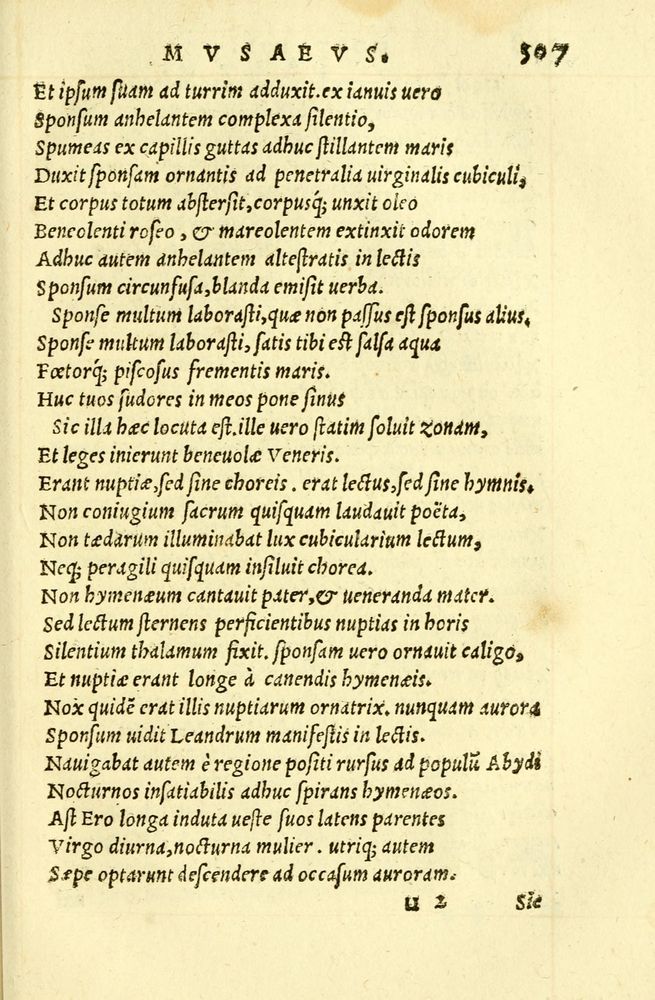 MVSAEVS. 507
Et ipsum suam ad turrim adduxit. ex ianuis uero
Sponsum anhelantem complexa silentio,
Spumeas ex capillis guttas adhuc stillantem maris
Duxit sponsam ornantis ad penetralia uirginalis cubiculi,
Et corpus totum abstersit, corpusq; unxit oleo
Beneolenti roseo, & mareolentem extinxit odorem
Adhuc autem anhelantem altestratis in lectis
Sponsum circunfusa, blanda emisit uerba.
Sponse multum laborasti, quæ non passus est sponsus alius,
Sponse multum laborasti, satis tibi est salsa aqua
Fœtorq́; piscosus frementis maris.
Huc tuos sudores in meos pone sinus
Sic illa hæc locuta est. ille uero statim soluit zonam,
Et leges inierunt beneuolæ Veneris.
Erant nuptiæ, sed sine choreis. erat lectus, sed sine hymnis.
Non coniugium sacrum quisquam laudauit poëta,
Non tædarum illuminabat lux cubicularium lectum,
Neq; peragili quisquam insiluit chorea.
Non hymenæum cantauit pater, & ueneranda mater.
Sed lectum sternens perficientibus nuptias in horis
Silentium thalamum fixit. sponsam uero ornauit caligo,
Et nuptiæ erant longe à canendis hymenæis.
Nox quidē erat illis nuptiarum ornatrix. nunquam aurora
Sponsum uidit Leandrum manifestis in lectis.
Nauigabat autem è regione positi rursus ad populū Abydi
Nocturnos insatiabilis adhuc spirans hymenæos.
Ast Ero longa induta ueste suos latens parentes
Virgo diurna, nocturna mulier. utriq; autem
Sæpe optarunt descendere ad occasum auroram.
u 2 Sic